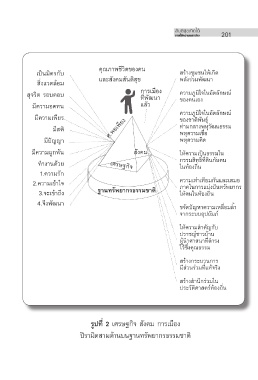 201
คุณภาพชีวิตของคน
และสังคมสันติสุข
เป็นมิตรกับ
สิ่งแวดล้อม
สุจริต รอบคอบ
มีความอดทน
มีความเพียร
มีสติ
มีปัญญา
มีความผูกพัน
ทำงานด้วย
1.ความรัก
2.ความเข้าใจ
3.จะเข้าถึง
4.จึงพัฒนา
การเมือง
ที่พัฒนา
แล้ว
สังคม
เศรษฐกิจ
ฐานทรัพยากรธรรมชาติ
สร้างชุมชนให้เกิด
พลังร่วมพัฒนา
ความภูมิใจในอัตลักษณ์
ของตนเอง
ความภูมิใจในอัตลักษณ์
ของชาติพันธุ์
ท่ามกลางพหุวัฒนธรรม
พหุความเชื่อ
พหุความคิด
ให้ความเป็นธรรมใน
กรรมสิทธิ์ที่ดินกับคน
ในท้องถิ่น
ขจัดปัญหาความเหลื่อมล้ำ
จากระบบอุปถัมภ์
ให้ความสำคัญกับ
ปราชญ์ชาวบ้าน
ผู้นำศาสนาที่ดีงาม
ไว้ซึ่งคุณธรรม
สร้างกระบวนการ
มีส่วนร่วมที่แท้จริง
สร้างสำนึกร่วมใน
ประวัติศาสตร์ท้องถิ่น
รูปที่ 2 เศรษฐกิจ สังคม การเมือง
ปิรามิดสามด้านบนฐานทรัพยากรธรรมชาติ